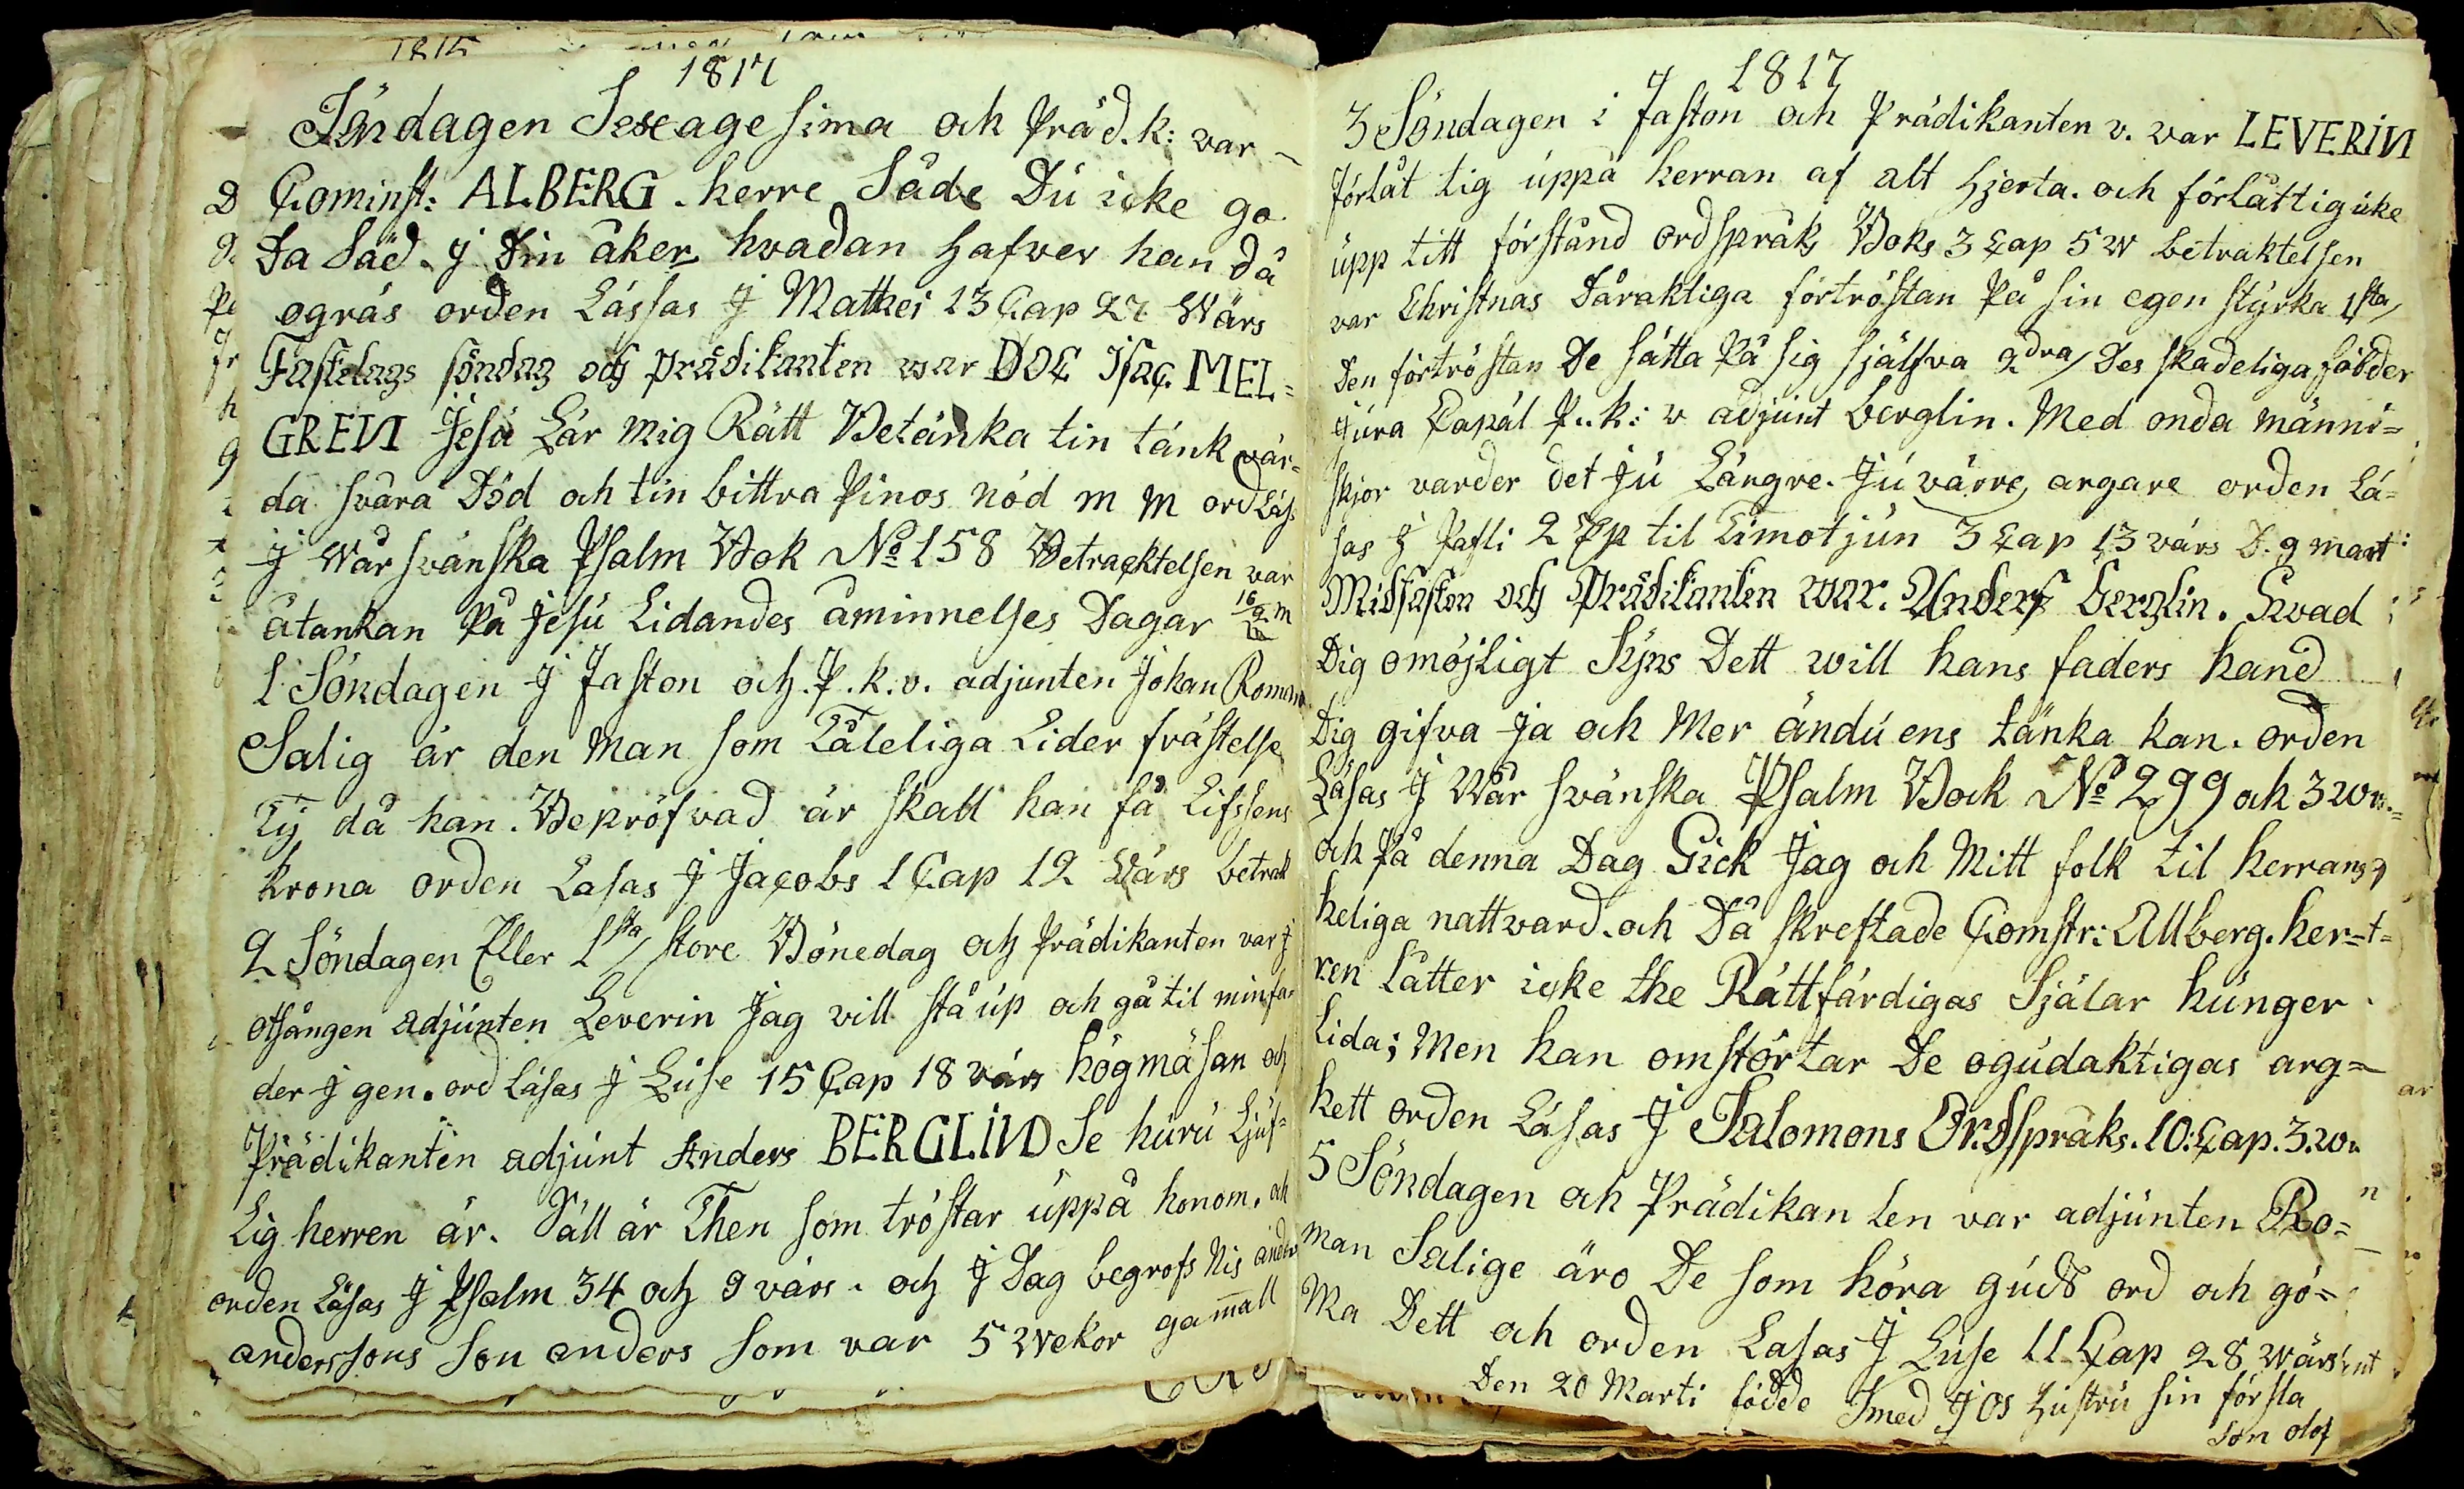 1817
Söndagen Sexagesima och Präd.k: var
Cominst: ALBERG. herre Såde Dú icke go
Da Säd. j Din åker hvadan hafver han då
ogräs orden Lässas J Mathei 13 Cap 27 Wärs
Fastelags söndag och prädikanten war DOC Isac. MEL=
GREN Jesú Lär mig Rätt Betänka tin tänk vär=
da svåra Död och tin bittra Pinos nöd m m ord Läs
J Wår svänska Psalm Bok No 158 Betracktelsen var
åtankan På Jesú Lidandes åminnelses Dagar
1 Söndagen J Faston och. P.k.v. adjunten Johan Roman
Salig är den Man som Tåleliga Lider frästelse
Tÿ då han. Bepröfvad är skall han få Lifssens
krona orden Lasas J Jacobs 1 Cap 12 Wärs betrak
2 Söndagen Eller 1sta store Bönedag och Prädikanten var J
otsången adjúnten Leverin Jag vill stå úp och gå til minfa=
der J gen. ord Läsas J Lúse 15 Cap 18 värs högmäsan och
Prädikanten adjúnt Anders BERGLIND Se húrú Ljúf=
Lig herren är. Säll är Then som tröstar úppå honom. och
orden Läsas J Psalm 34 och 9 värs. och J Dag begrofs Nis anders
anderssons son anders som var 5 wekor gamall
1817
3 Söndagen i Faston och Prädikanten v. var LEVERIN
förlåt tig úppå herran af alt hjerta. och förlåt tig icke
úpp titt förstånd ordspråks Boks 3 Cap 5 W betraktelsen
var Christnas Dåraktiga förtröstan På sin egen stÿrka 1sta
Den förtröstan De sätta På sig sjålfva 2dra Des skadeliga földer
Júra Capäl P.k: v adjúnt berglin. Med onda männi=
skjor varder det jú Längre. Jú värre argare orden Lä=
sas J Pafli 2 Ep til Timotjún 3 Cap 13 värs D. 9 mart:
Midfaston och Prädikanten war. Anders berglin. Hwad
Dig omöjligt Sÿns Dett will hans faders hand
Dig gifva ja och Mer ändú ens tänka kan. orden
Läsas J Wår svänska Psalm Bock No 299 och 3 w
och På denna Dag Gick Jag och Mitt folk til herrans
heliga nattvard. och Då skreftade Comstr: Allberg. her=
ren Låtter icke the Rättfärdigas Själar húnger
Lida; Men han omstörtar De ogúdaktigas arg=
hett orden Läsas J Salomons Ordspråks. 10: Cap. 3. w
5 Söndagen och Prädikanten var adjúnten Ro=
man Salige äro De som höra gúds ord och gö=
Ma Dett och orden Lasas J Lúse 11 Cap 28 Wärs
Den 20 Marti födde Smed J OS hústrú sin första
son olof